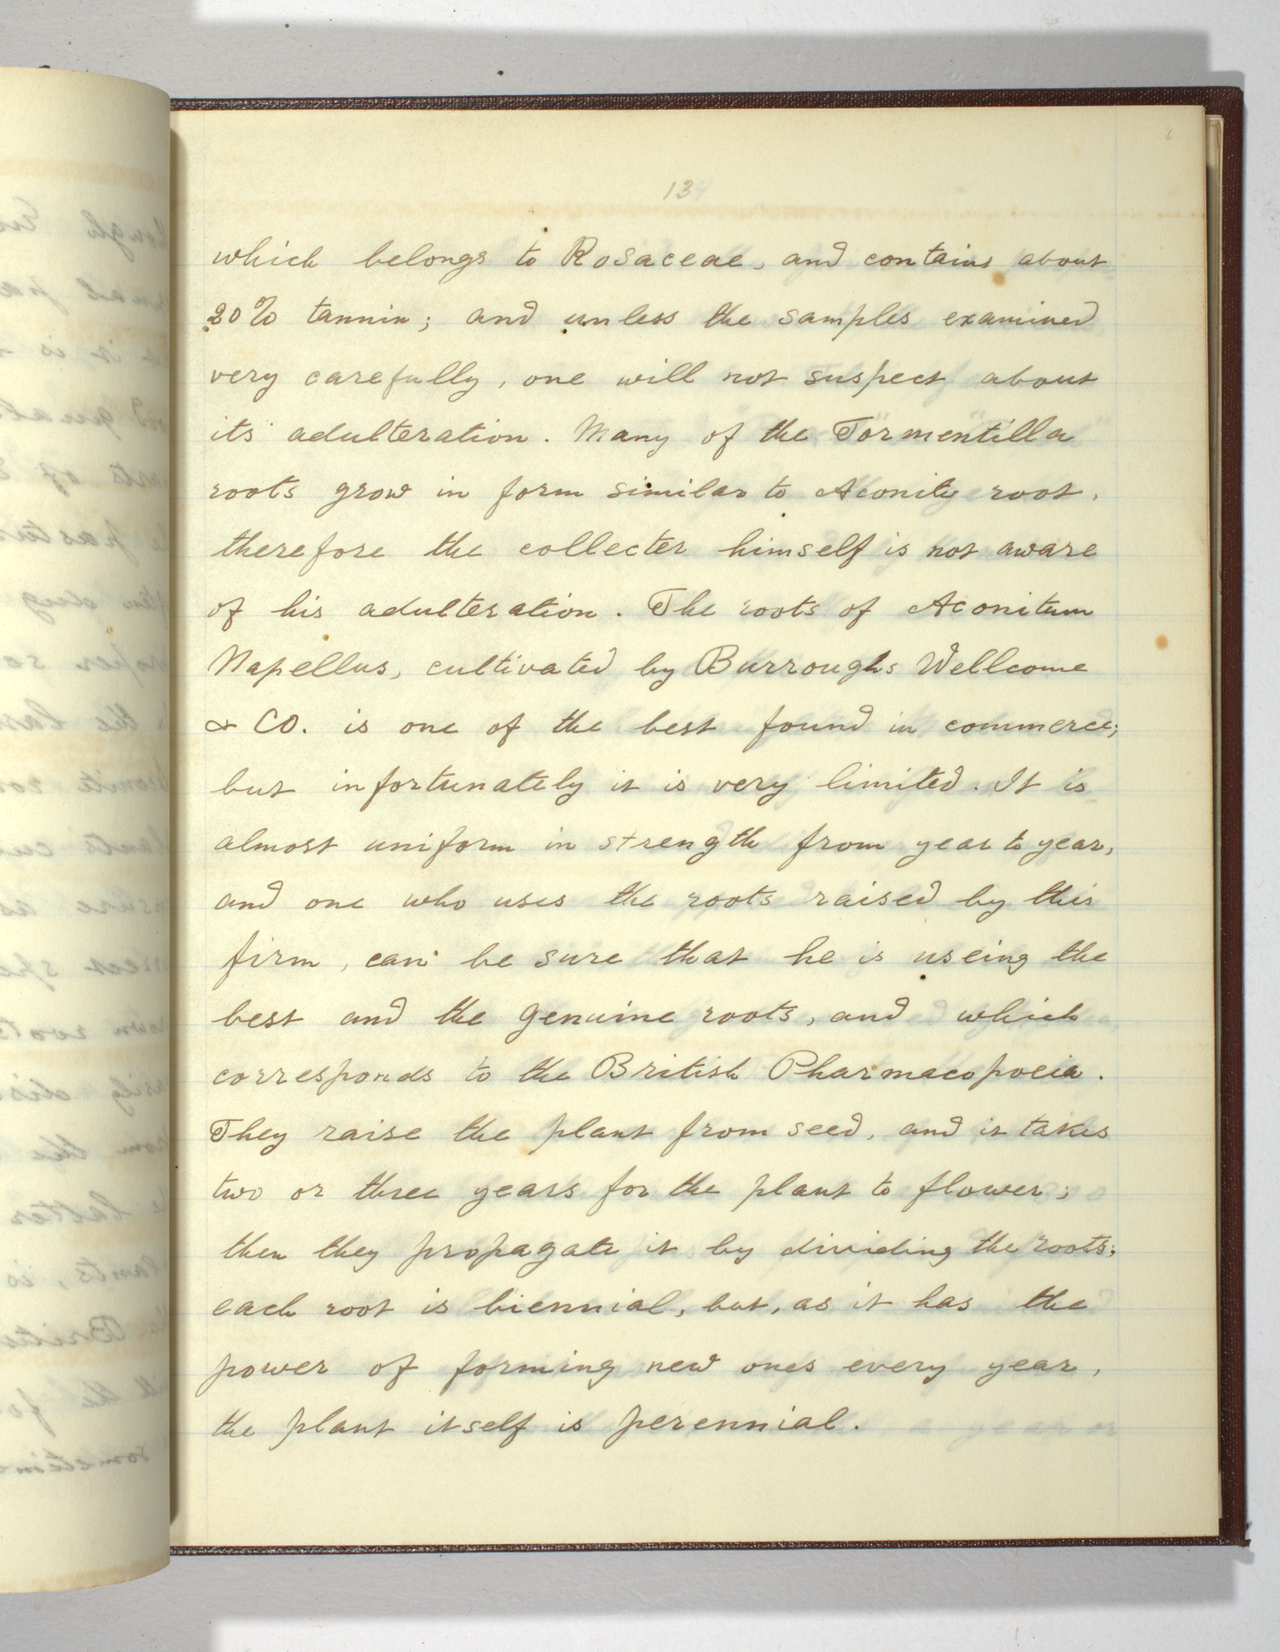 13
which belongs to Rosaceae, and contains about
20% tannin; and unless the samples examined
very carefully, one will not suspect about
its adulteration. Many of the Tormentilla
roots grow in form similar to Aconite root,
therefore the collecter himself is not aware
of his adulteration. The roots of Aconitum
Napellus, cultivated by Burroughs Wellcome
& CO. is one of the best found in commerce;
but infortunately it is very limited. It is
almost uniform in strength from year to year,
and one who uses the roots raised by this
firm, can be sure that he is useing the
best and the genuine roots, and which
corresponds to the British Pharmacopoeia.
They raise the plant from seed, and it takes
two or three years for the plant to flower;
then they propagate it by dividing the roots;
each root is biennial, but, as it has the
power of forming new ones every year,
the plant itself is perennial.